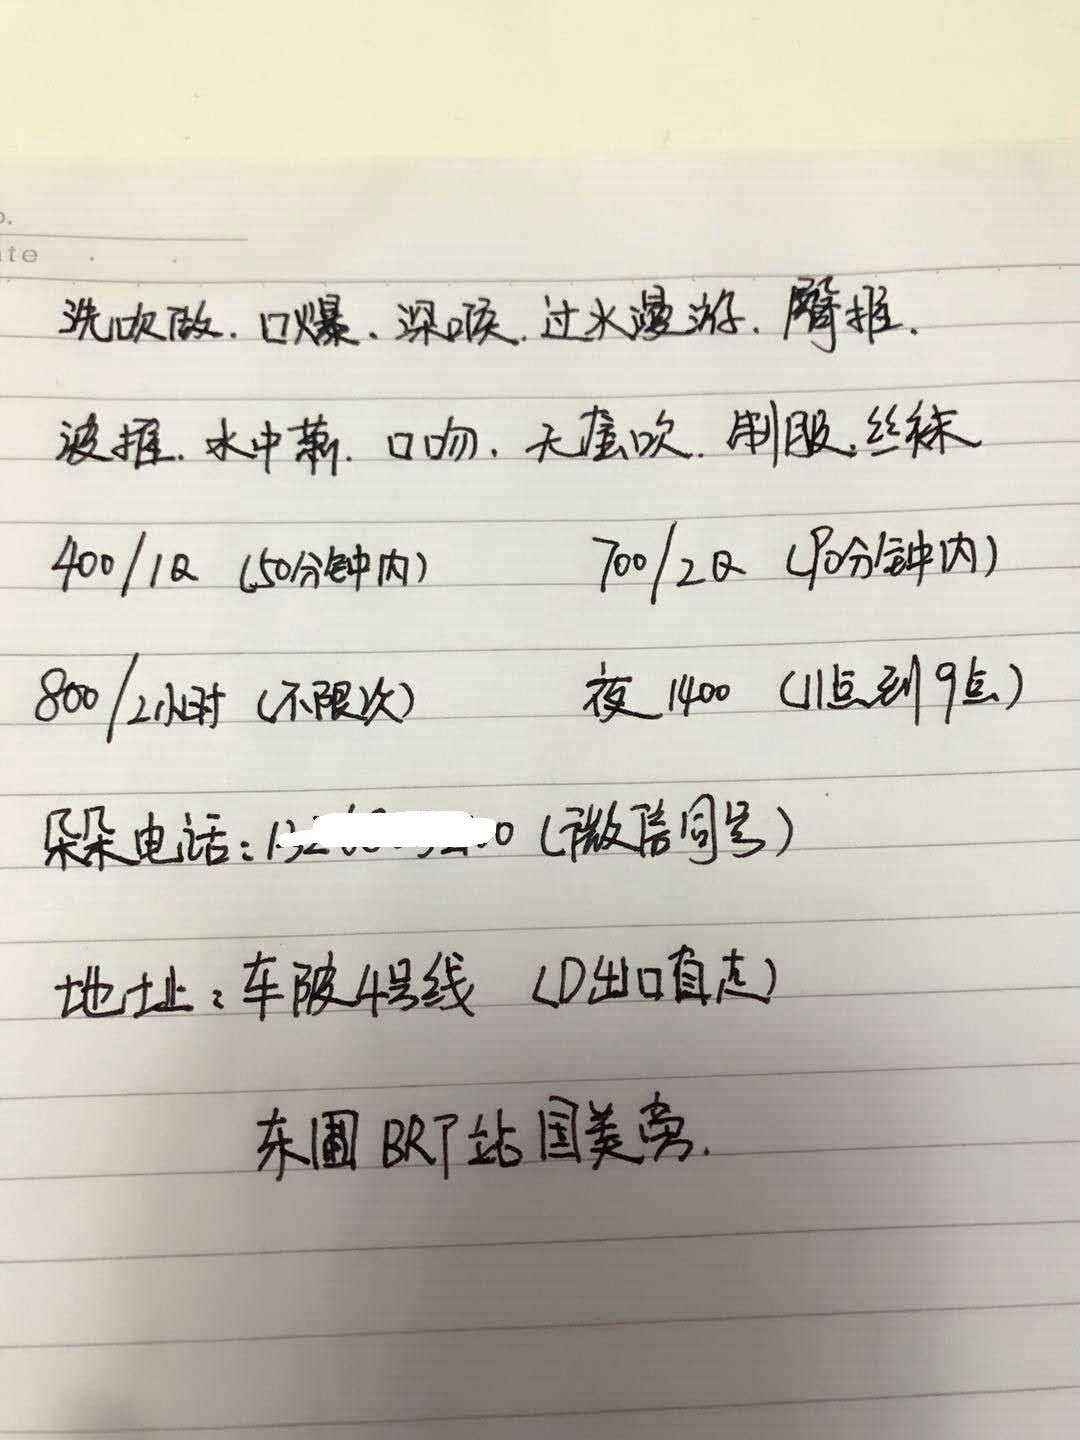 ate
洗吹做.口爆、深喉.过水漫游.臀推.
波推.水中萧.口吻.无套吹.制服.丝袜
400/1Q (50分钟内) 700/2Q (90分钟内)
800/2小时 (不限次) 夜1400 (11点到9点)
朵朵电话: (微信同号)
地址:车陂4号线 (D出口直走)
东圃BRT站国美旁.